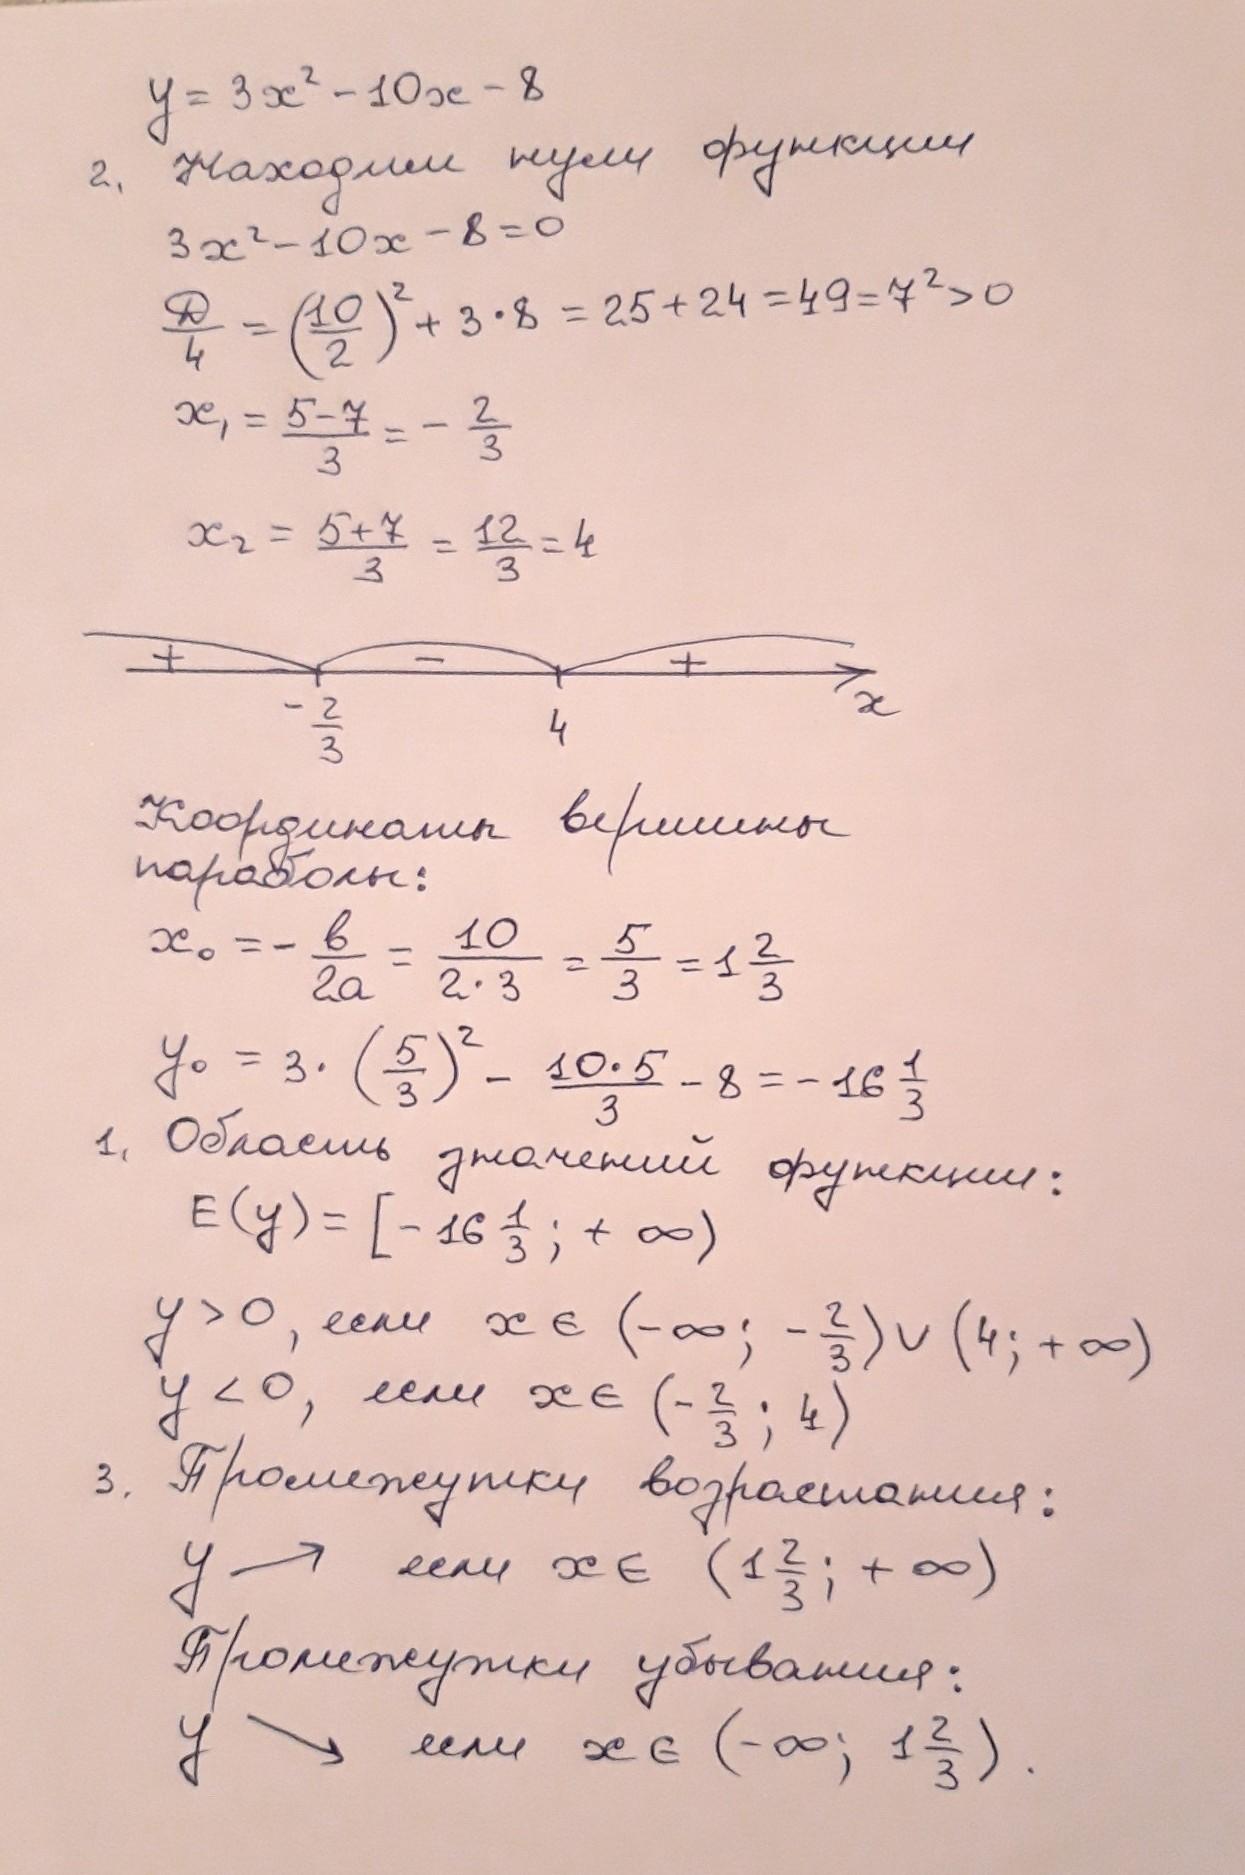 y = 3x² - 10x - 8
2. Находим нули функции
3x² - 10x - 8 = 0
D/4 = (10/2)² + 3·8 = 25 + 24 = 49 = 7² > 0
x₁ = (5-7)/3 = - 2/3
x₂ = (5+7)/3 = 12/3 = 4
+ - +
- 2/3 4 x
Координаты вершины
параболы:
x₀ = - в/2a = 10/(2·3) = 5/3 = 1 2/3
y₀ = 3·(5/3)² - (10·5)/3 - 8 = - 16 1/3
1. Область значений функции:
E(y) = [- 16 1/3; + ∞)
y > 0, если x ∈ (-∞; - 2/3) ∪ (4; + ∞)
y < 0, если x ∈ (- 2/3; 4)
3. Промежутки возрастания:
y ↗ если x ∈ (1 2/3; + ∞)
Промежутки убывания:
y ↘ если x ∈ (-∞; 1 2/3).